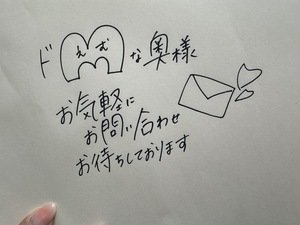 ドMな奥様
えむ
お気軽に
お問い合わせ
お待ちしております